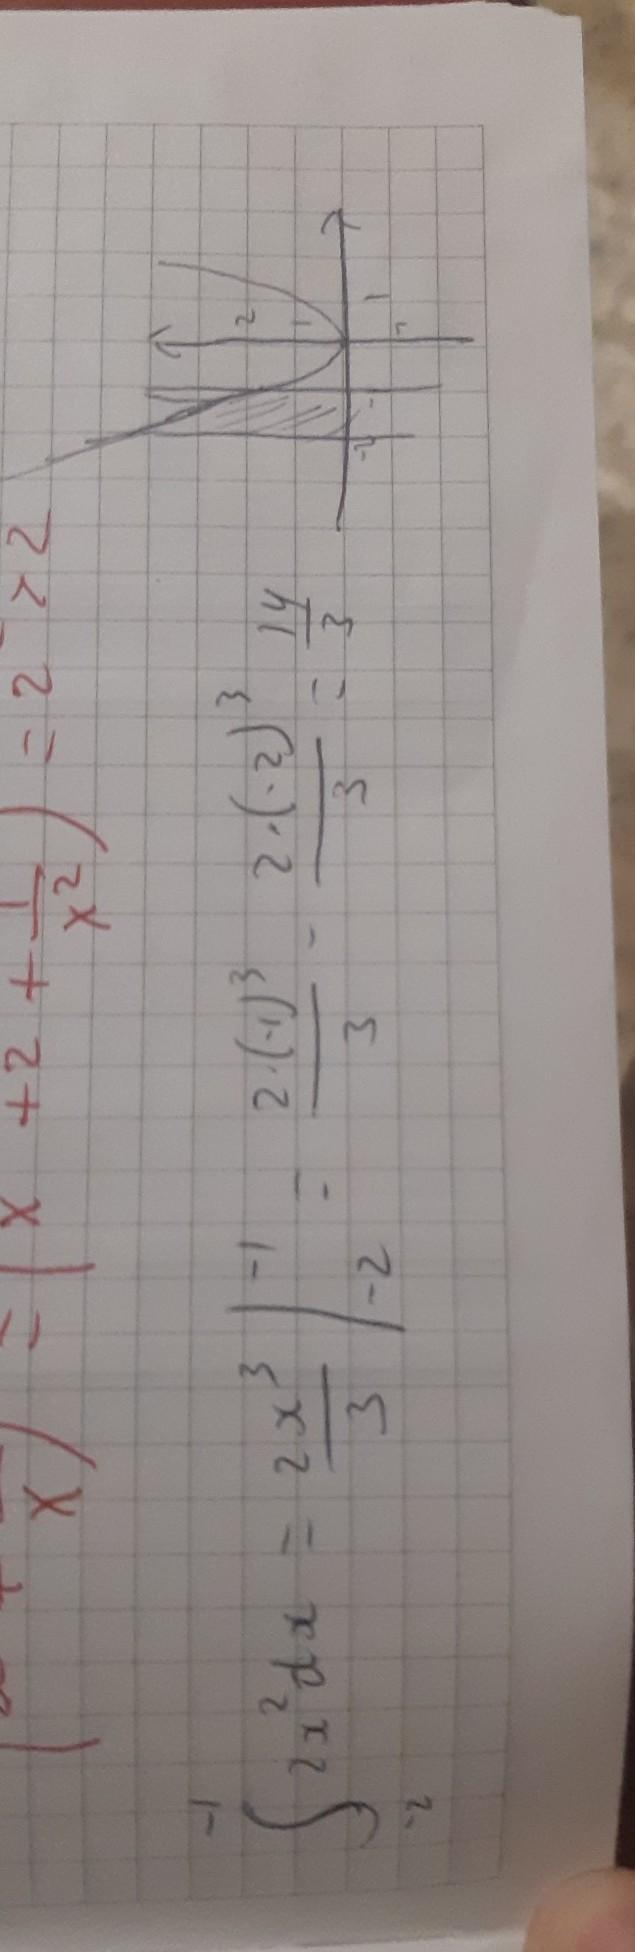 x) = (x + 2 + 1/x²) = 2 > 2
∫_{-2}^{-1} 2x² dx = 2x³/3 |_{-2}^{-1} = 2·(-1)³/3 - 2·(-2)³/3 = 14/3
2
1
1
-1
-2